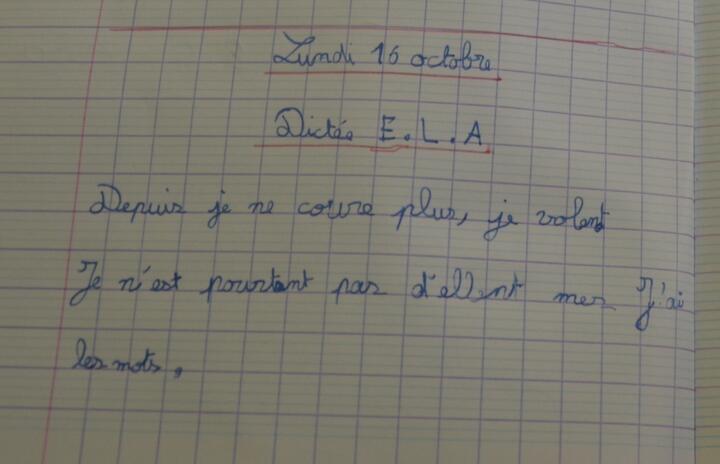 Lundi 16 octobre
Dictée E.L.A
Depuis je ne coure plus, je volent
Je n'est pourtant pas d'ellent mes J'ai
les mots.